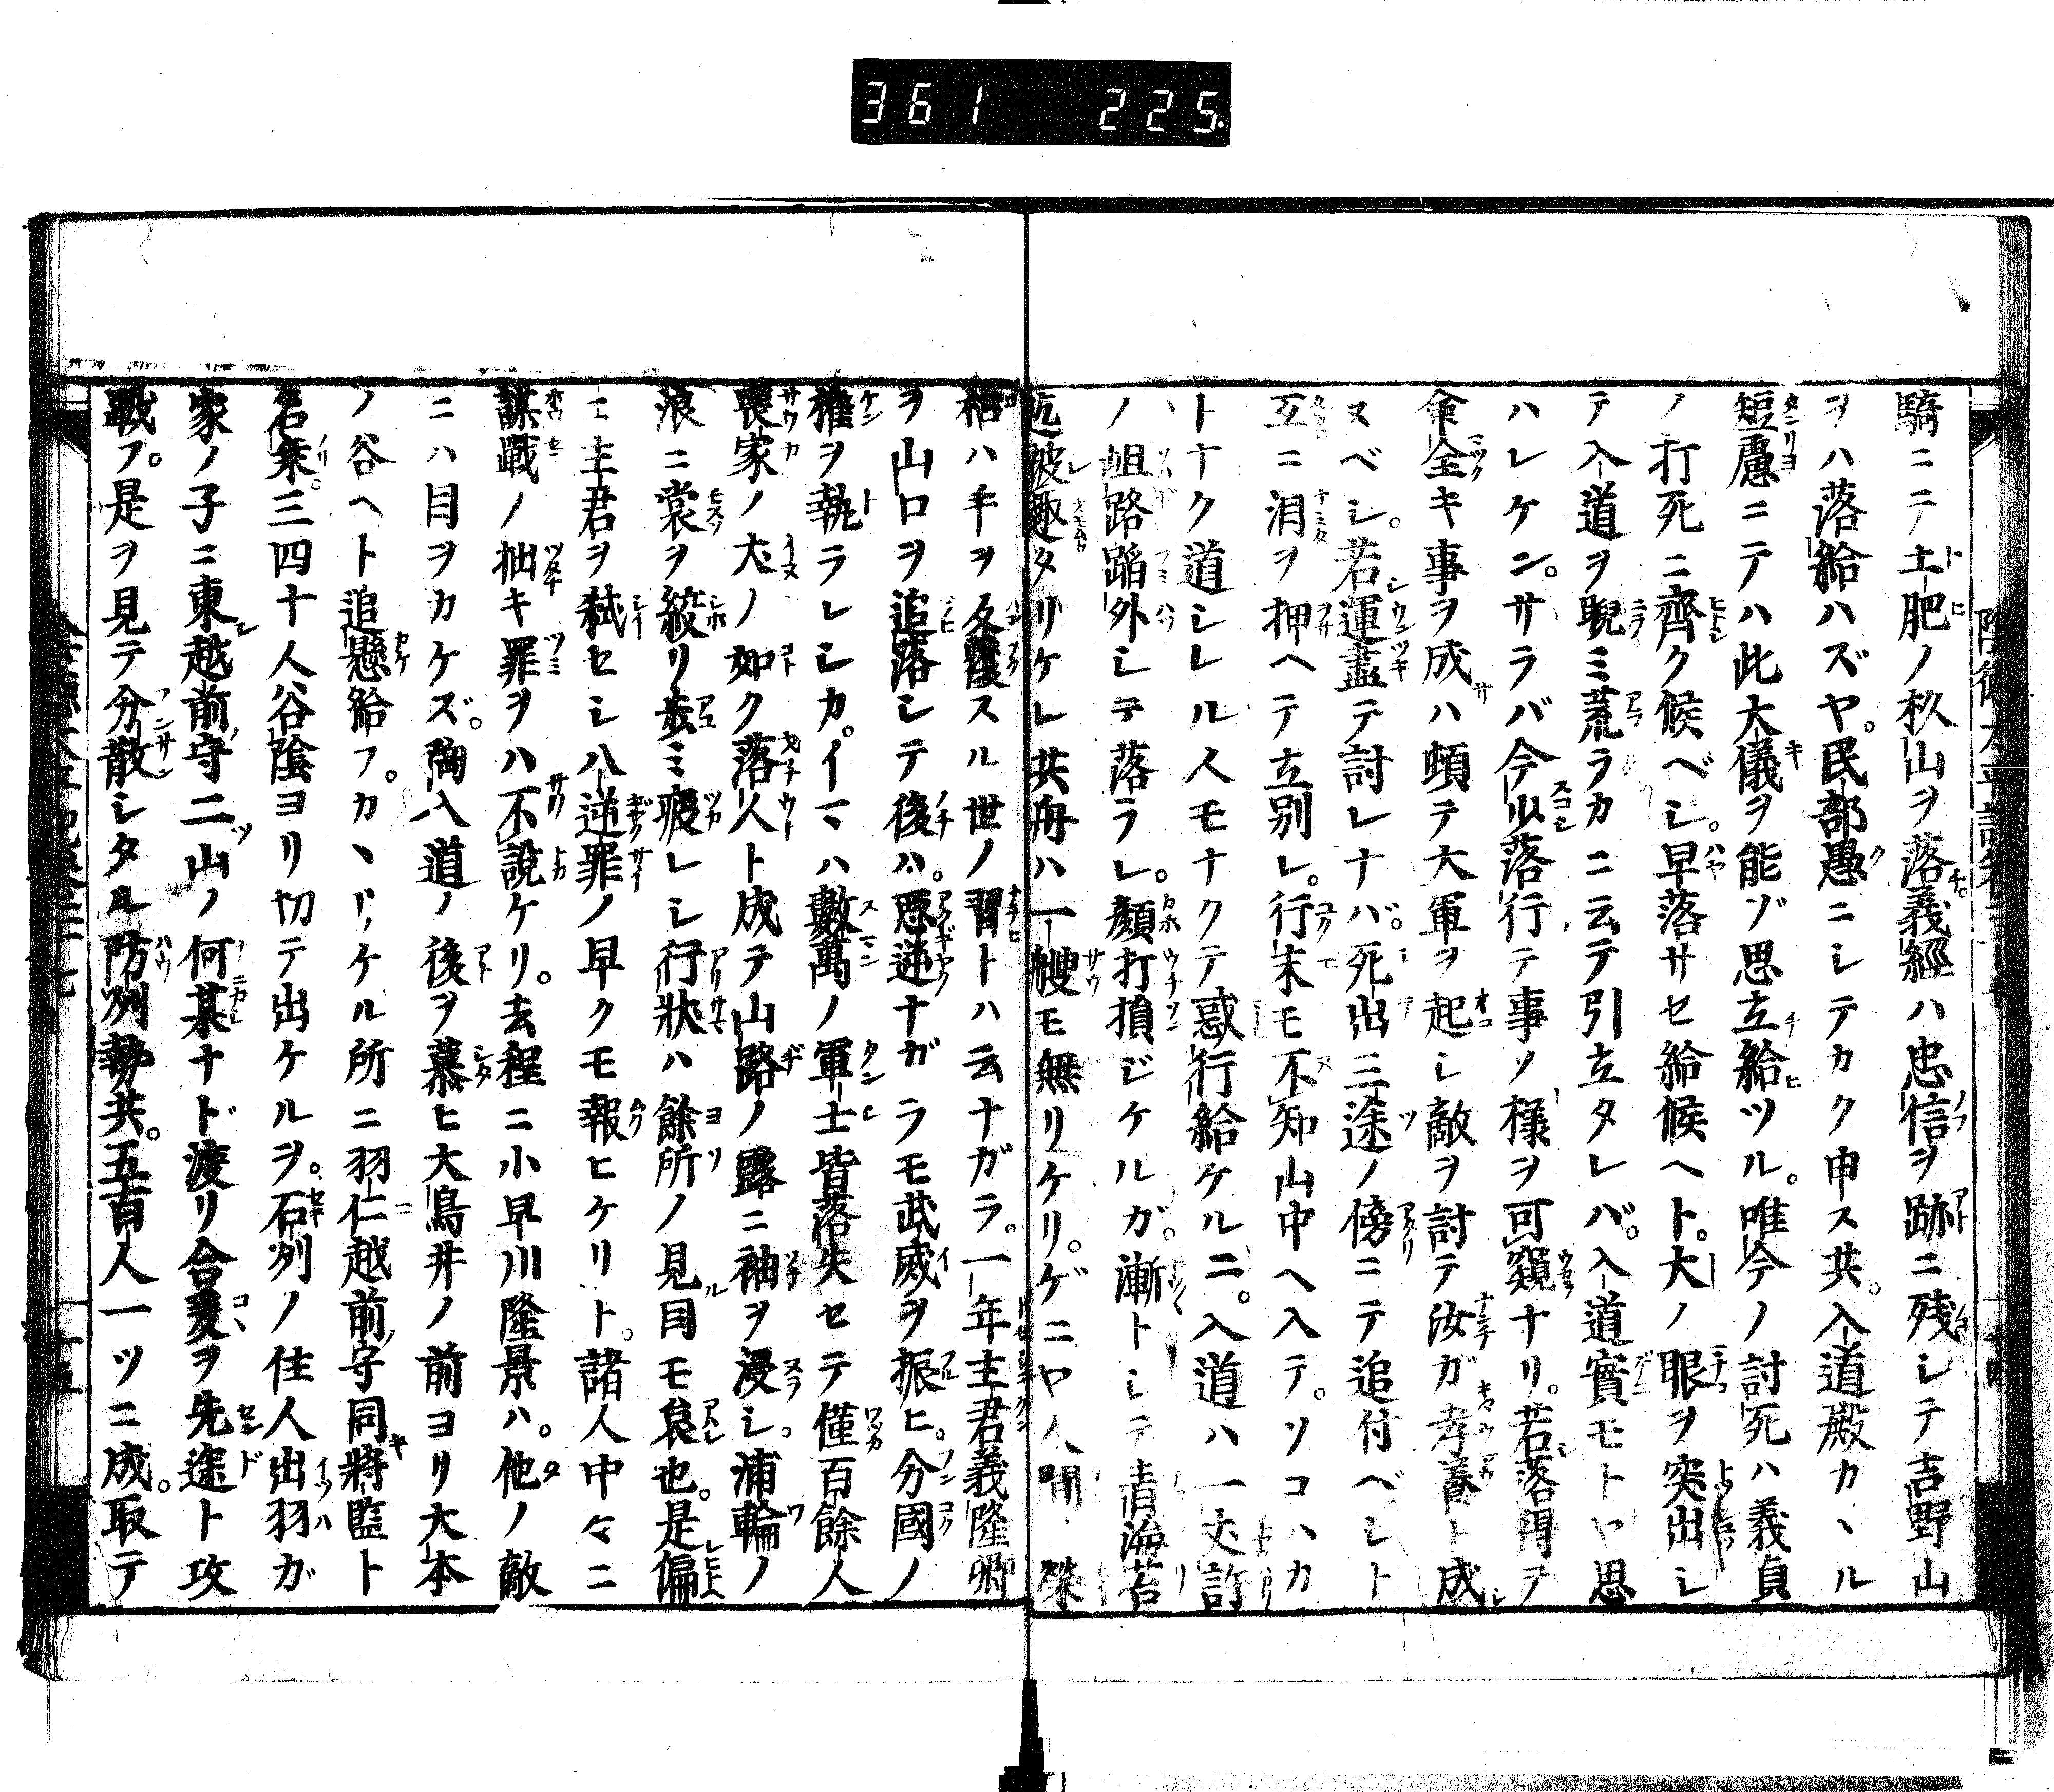 361 225
騎ニテ土肥ノ杦山ヲ落義經ハ忠信ヲ跡ニ残シテ吉野山
ヲハ落給ハズヤ。民部愚ニシテカク申ス共。入道殿カヽル
短慮ニテハ此大儀ヲ能ゾ思立給ツル。唯今ノ討死ハ義貞
ノ打死ニ齊ク候ベシ。早落サセ給候ヘト。大ノ眼ヲ突出シ
テ入道ヲ睨ミ荒ラカニ云テ引立タレバ。入道實モトヤ思
ハレケン。サラバ今少落行テ事ノ様ヲ可窺ナリ。若落得テ
命全キ事ヲ成ハ頓テ大軍ヲ起シ敵ヲ討テ汝ガ孝養ト成
ヌベシ。若運盡テ討レナバ。死出三途ノ傍ニテ追付ベシト
互ニ泪ヲ押ヘテ立別レ。行末モ不知山中ヘ入テ。ソコハカ
トナク道シレル人モナクテ惑行給ケルニ。入道ハ一丈許
ノ岨路蹈外シテ落ラレ。顔打損ジケルガ。漸トシテ青海苔
迠被趣タリケレ共舟ハ一艘モ無リケリ。ゲニヤ人間榮
枯ハ手ヲ反覆スル世ノ習トハ云ナガラ。一年主君義隆卿
ヲ山口ヲ追落シテ後ハ。悪逆ナガラモ武威ヲ振ヒ。分國ノ
權ヲ執ラレシカ。イマハ數萬ノ軍士皆落失セテ僅百餘人
喪家ノ犬ノ如ク落人ト成テ山路ノ露ニ袖ヲ浸シ。浦輪ノ
浪ニ裳ヲ絞リ歩ミ疲レシ行狀ハ餘所ノ見目モ哀也。是偏
ニ主君ヲ弑セシ八逆罪ノ早クモ報ヒケリト。諸人中々ニ
謀戰ノ拙キ罪ヲハ不説ケリ。去程ニ小早川隆景ハ。他ノ敵
ニハ目ヲカケズ。陶入道ノ後ヲ慕ヒ大鳥井ノ前ヨリ大本
ノ谷ヘト追懸給フ。カヽリケル所ニ羽仁越前守同將監ト
名乗。三四十人谷陰ヨリ切テ出ケルヲ。石州ノ住人出羽ガ
家ノ子ニ東越前守二山ノ何某ナド渡リ合爰ヲ先途ト攻
戰フ。是ヲ見テ分散シタル防州勢共。五百人一ツニ成。取テ